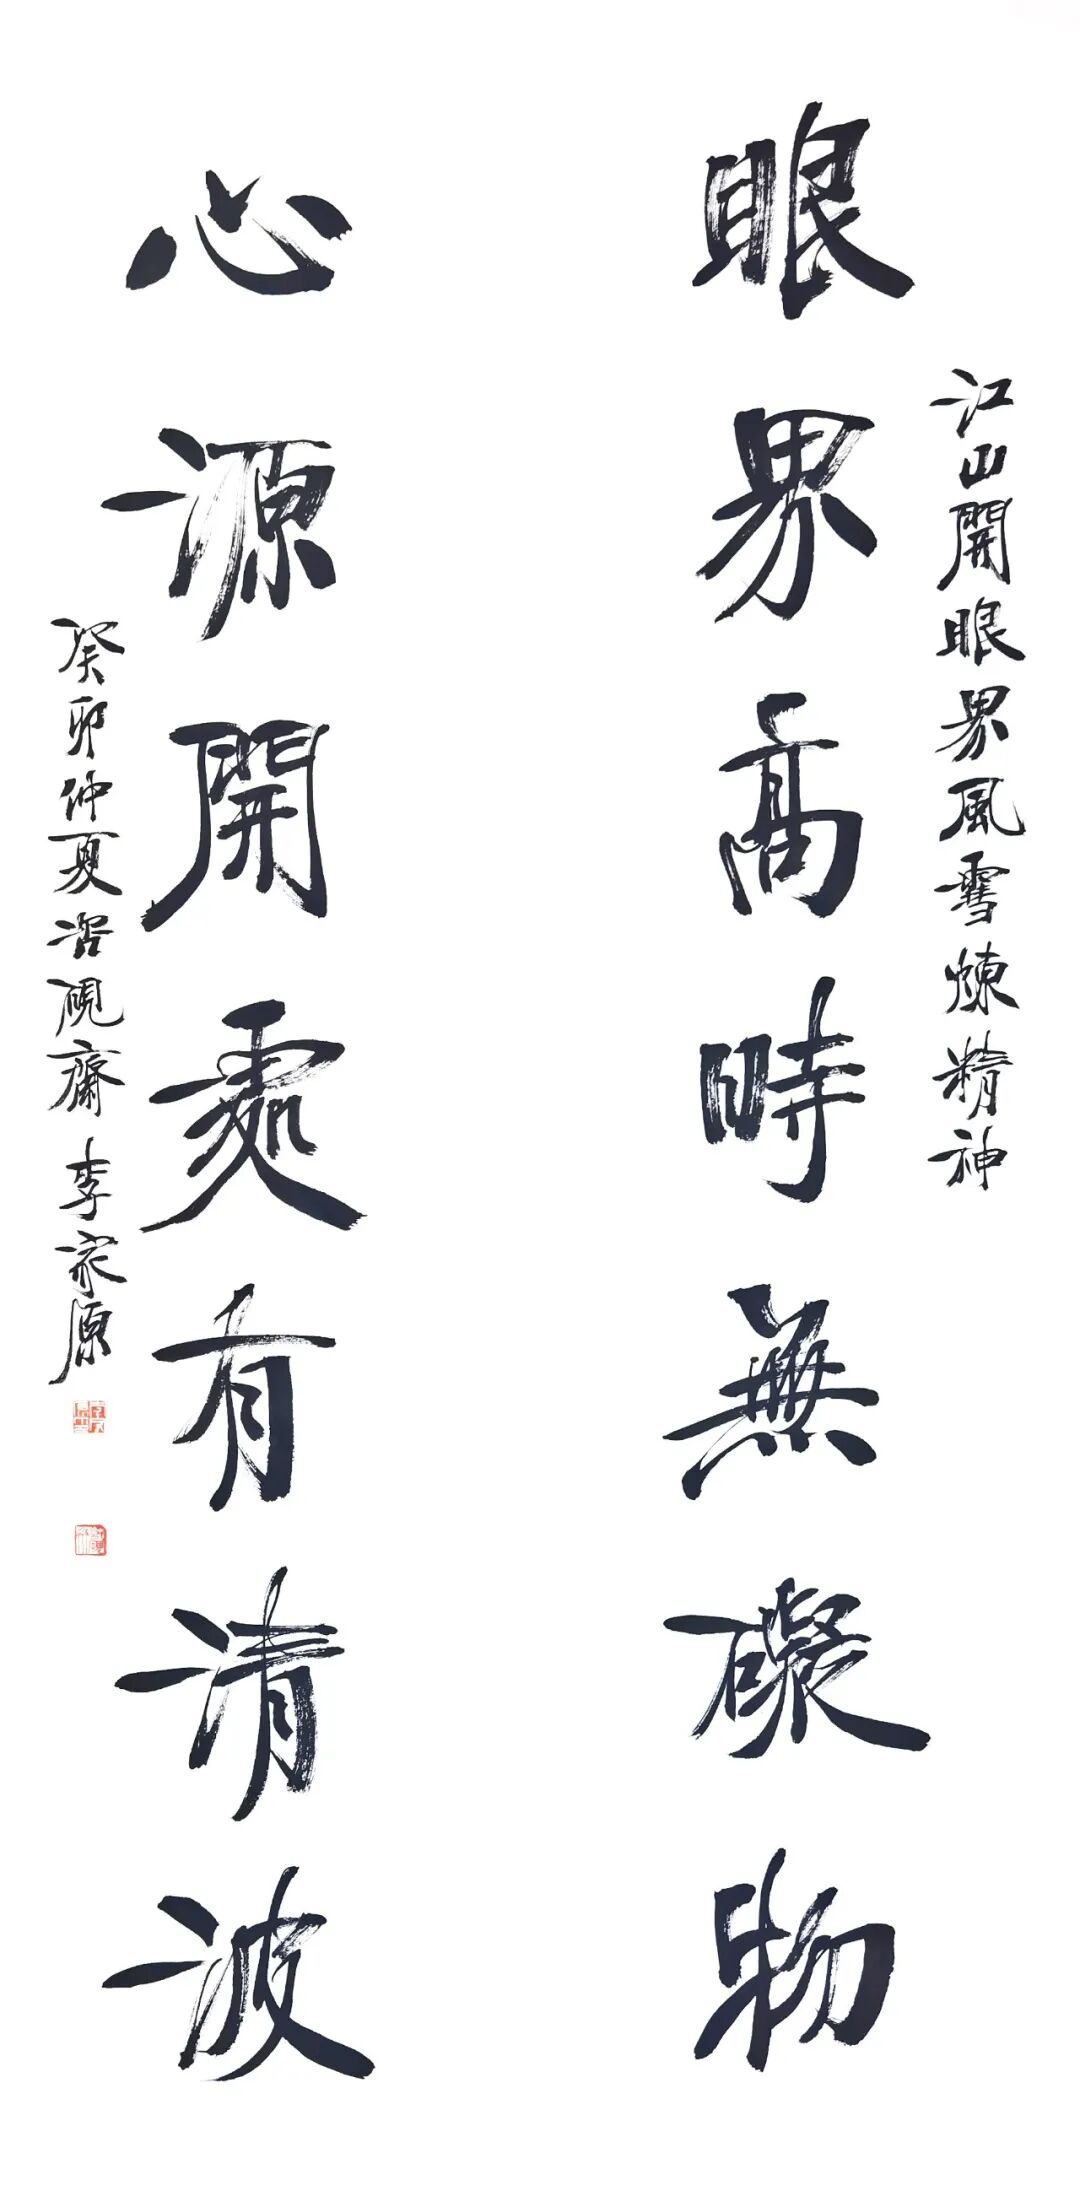 江山開眼界風雪煉精神
眼界高時無礙物
心源開處有清波
癸卯仲夏硯齋李家原